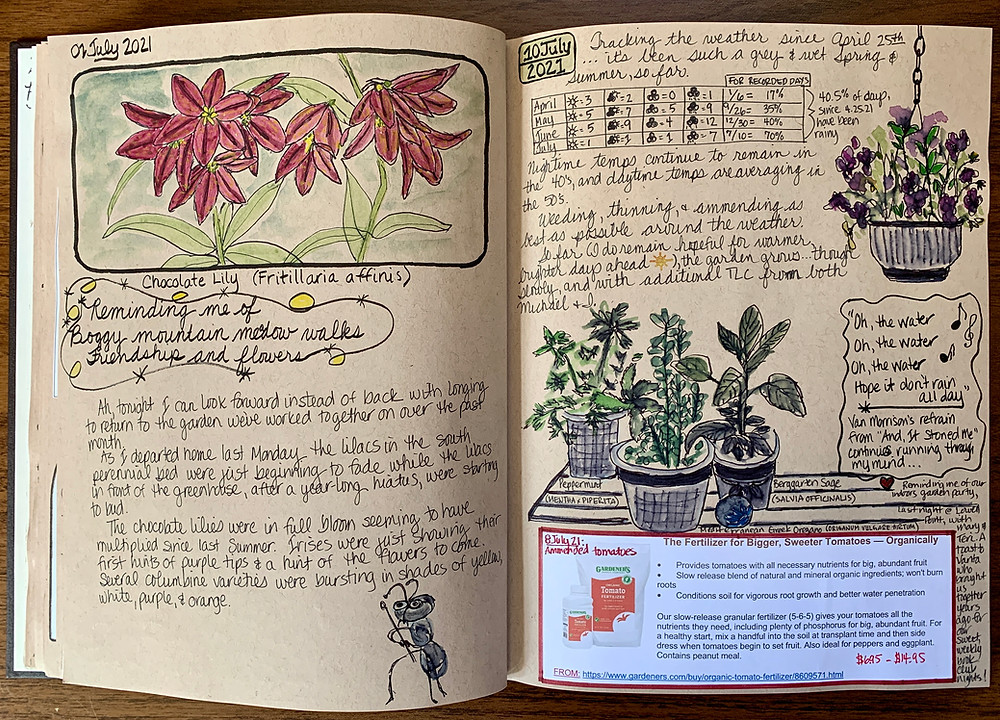 01 July 2021
Chocolate Lily (Fritillaria affinis)
Reminding me of
Boggy mountain meadow walks
Friendship and flowers
Ah, tonight I can look forward instead of back with longing
to return to the garden we've worked together on over the past
month.
As I departed home last Monday the lilacs in the south
perennial bed were just beginning to fade while the lilacs
in front of the greenhouse, after a year-long hiatus, were starting
to bud.
The chocolate lilies were in full bloom seeming to have
multiplied since last Summer. Irises were just showing their
first hints of purple tips & a hint of the flowers to come.
Several columbine varieties were bursting in shades of yellow,
white, purple, & orange.
10 July
2021
Tracking the weather since April 25th
... it's been such a grey & wet Spring &
Summer, so far.
FOR RECORDED DAYS
April =3 =2 =0 =1 1/6 = 17%
May =5 =7 =5 =9 9/26 = 35%
June =5 =9 =4 =12 12/30 = 40%
July =1 =1 =1 =7 7/10 = 70%
40.5% of days
since 4.25.21
have been
rainy
Nightime temps continue to remain in
the 40's, and daytime temps are averaging in
the 50's.
Weeding, thinning, & ammending as
best as possible around the weather.
So far (I do remain hopeful for warmer,
brighter days ahead), the garden grows... though
slowly, and with additional TLC from both
Michael & I.
"Oh, the water
Oh, the water
Oh, the water
Hope it don't rain
all day"
Van Morrison's refrain
from "And, It Stoned Me"
continues running through
my mind...
Peppermint
(MENTHA x PIPERITA)
Berggarten Sage
(SALVIA OFFICINALIS)
Greek Oregano (ORIGANUM VULGARE HIRTUM)
Reminding me of our
indoors garden party,
last night @ Lowell
Point, with
Mary &
Teri. A
toast to
Vanta
who
brought
us
together
years
ago for
our
sweet,
weekly
book
club
nights!
8 July 21:
Ammended tomatoes
The Fertilizer for Bigger, Sweeter Tomatoes — Organically
• Provides tomatoes with all necessary nutrients for big, abundant fruit
• Slow release blend of natural and mineral organic ingredients; won't burn
roots
• Conditions soil for vigorous root growth and better water penetration
GARDENER'S
ORGANIC
Tomato
FERTILIZER
Tomato
Our slow-release granular fertilizer (5-6-5) gives your tomatoes all the
nutrients they need, including plenty of phosphorus for big, abundant fruit. For
a healthy start, mix a handful into the soil at transplant time and then side
dress when tomatoes begin to set fruit. Also ideal for peppers and eggplant.
Contains peanut meal.
$6.95 - $14.95
FROM: https://www.gardeners.com/buy/organic-tomato-fertilizer/8609571.html